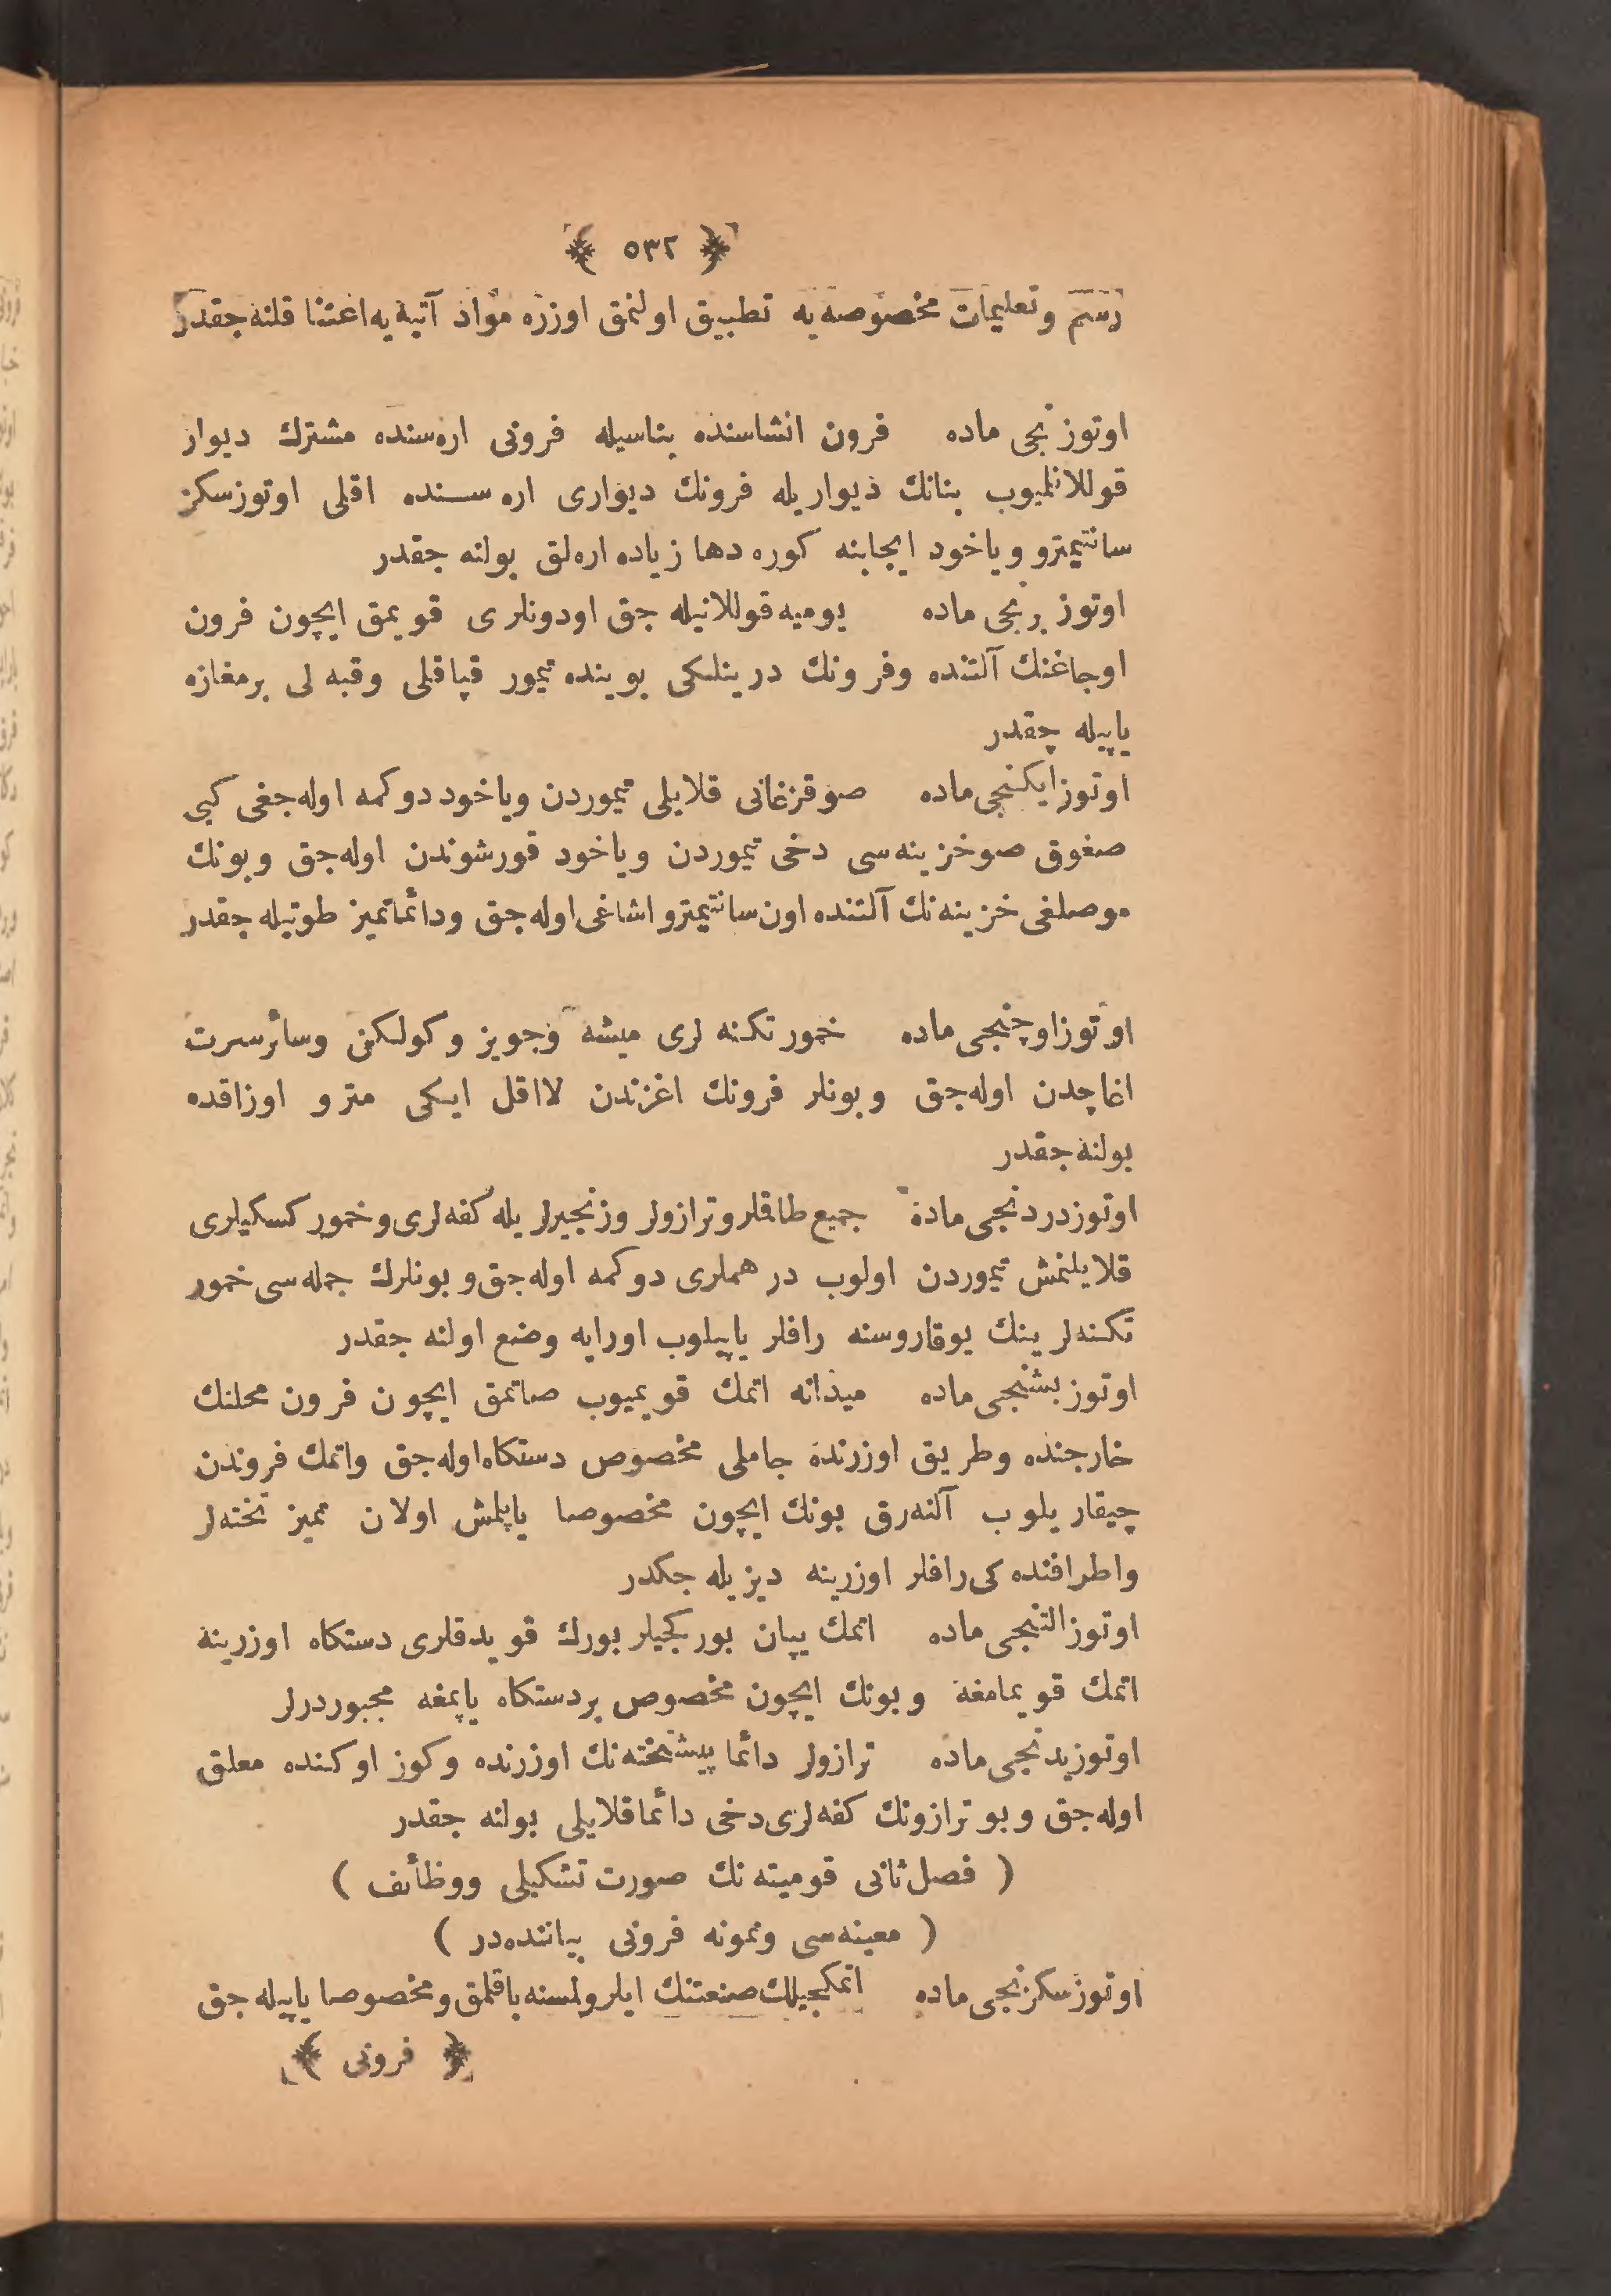 ﴿ ٥٣٢ ﴾
رسم وتعلیمات مخصوصه‌یه تطبیق اولنمق اوزره مواد آتیه‌یه اعتنا قلنه‌جقدر
اوتوزنجی ماده فرون انشاسنده بناسیله فرونی اره‌سنده مشترك دیوار
قوللانلمیوب بنانك دیواریله فرونك دیواری اره‌سنده اقلی اوتوزسکز
سانتیمترو ویاخود ایجابنه کوره دها زیاده اره‌لق بولنه جقدر
اوتوز برنجی ماده یومیه قوللانیله جق اودونلری قویمق ایچون فرون
اوجاغنك آلتنده وفرونك درینلکی بوینده تیمور قپاقلی وقبه لی برمغازه
یاپیله جقدر
اوتوز ایکنجی ماده صوقزغانی قلایلی تیموردن ویاخود دوکمه اوله‌جغی کبی
صغوق صوخزینه‌سی دخی تیموردن ویاخود قورشوندن اوله‌جق وبونك
موصلغی خزینه‌نك آلتنده اون سانتیمترو اشاغی اوله‌جق ودائما تمیز طوتیله جقدر
اوتوز اوچنجی ماده خمور تکنه لری میشه وجویز وکولکن وسائر سرت
اغاچدن اوله‌جق وبونلر فرونك اغزندن لااقل ایکی مترو اوزاقده
بولنه جقدر
اوتوز دردنجی ماده جمیع طاقلر وترازولر وزنجیرلریله کفه‌لری وخمور کسکیلری
قلایلنمش تیموردن اولوب درهملری دوکمه اوله‌جق وبونلرك جمله‌سی خمور
تکنه‌لرینك یوقاروسنه رافلر یاپیلوب اورایه وضع اولنه جقدر
اوتوز بشنجی ماده میدانه اتمك قویمیوب صاتمق ایچون فرون محلنك
خارجنده وطریق اوزرنده جاملی مخصوص دستکاه اوله‌جق واتمك فروندن
چیقاریلوب آلنه‌رق بونك ایچون مخصوصا یاپلمش اولان تمیز تخته‌لر
واطرافنده کی رافلر اوزرینه دیزیله جکدر
اوتوز التنجی ماده اتمك یپان بورکجیلر بورك قویدقلری دستکاه اوزرینه
اتمك قویمامغه وبونك ایچون مخصوص بردستکاه یاپمغه مجبوردرلر
اوتوز یدنجی ماده ترازولر دائما پیشتخته‌نك اوزرنده وکوز اوکنده معلق
اوله‌جق وبو ترازونك کفه‌لری دخی دائما قلایلی بولنه جقدر
( فصل ثانی قومیته نك صورت تشکیلی ووظائف )
( معینه‌سی ونمونه فرونی بیاننده‌در )
اوتوز سکزنجی ماده اتمکجیلك صنعتنك ایلرولمسنه باقلمق ومخصوصا یاپیله جق
﴿ فرونی ﴾